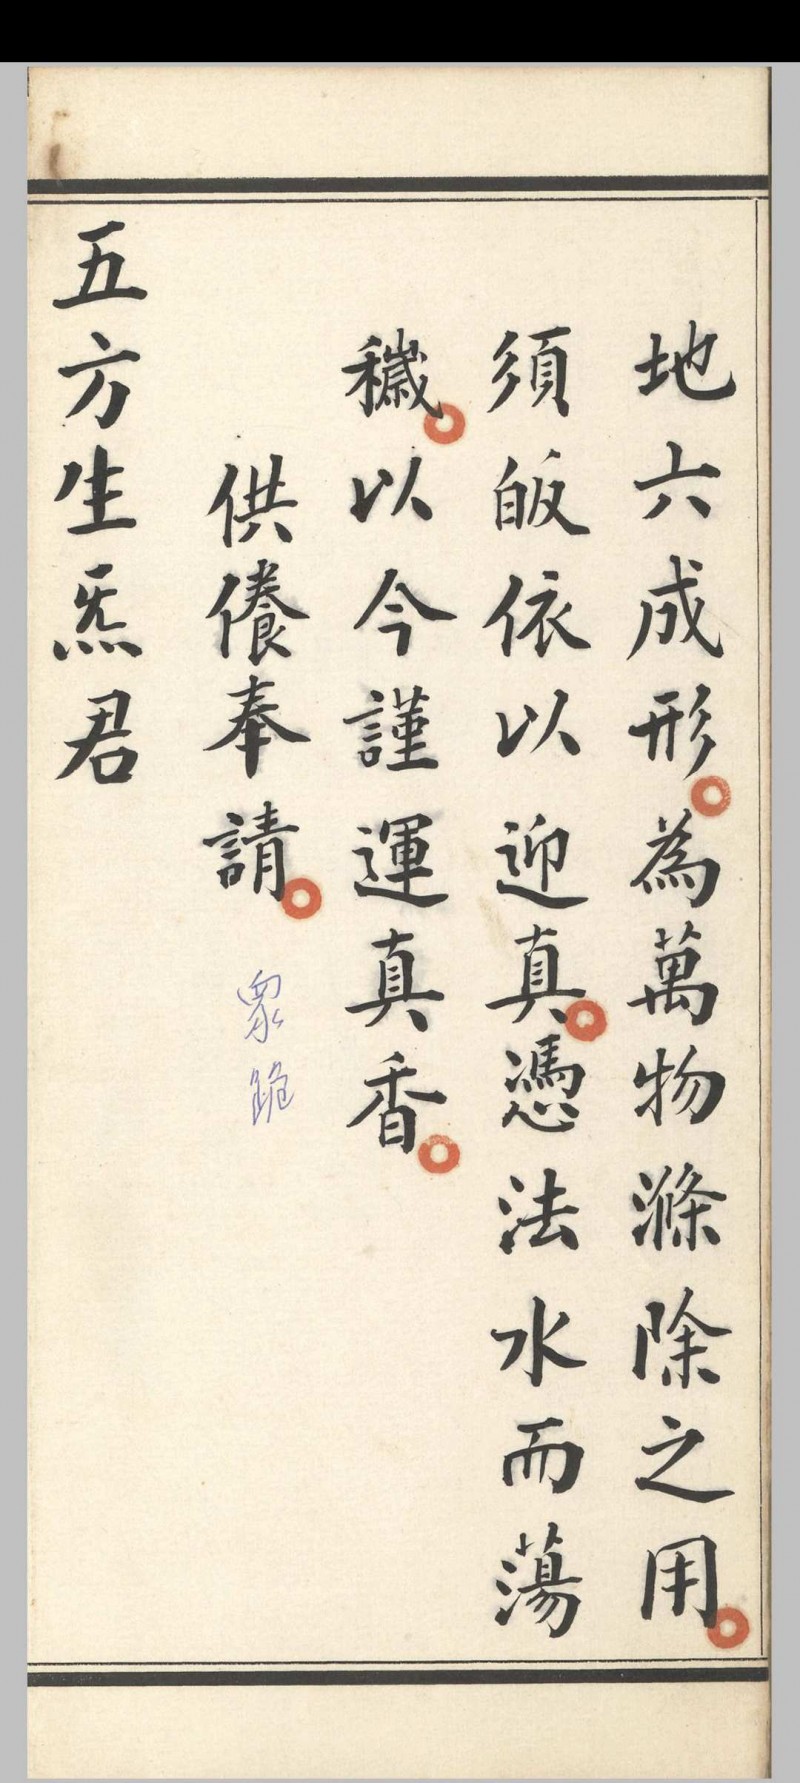 地六成形。為萬物滌除之用。
須皈依以迎真。憑法水而蕩
穢。以今謹運真香。
供養奉請。眾跪
五方生炁君